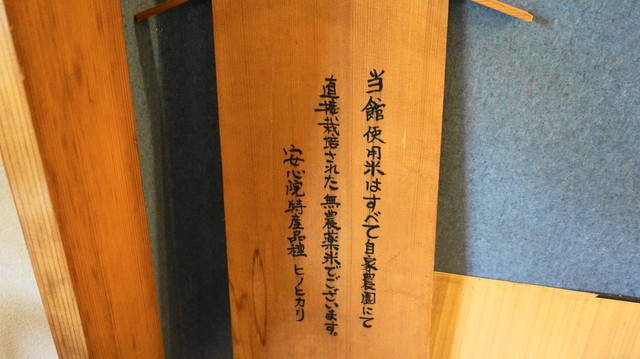 当館使用米はすべて自家農園にて
直播栽培された無農薬米でございます。
安心院特産品種 ヒノヒカリ